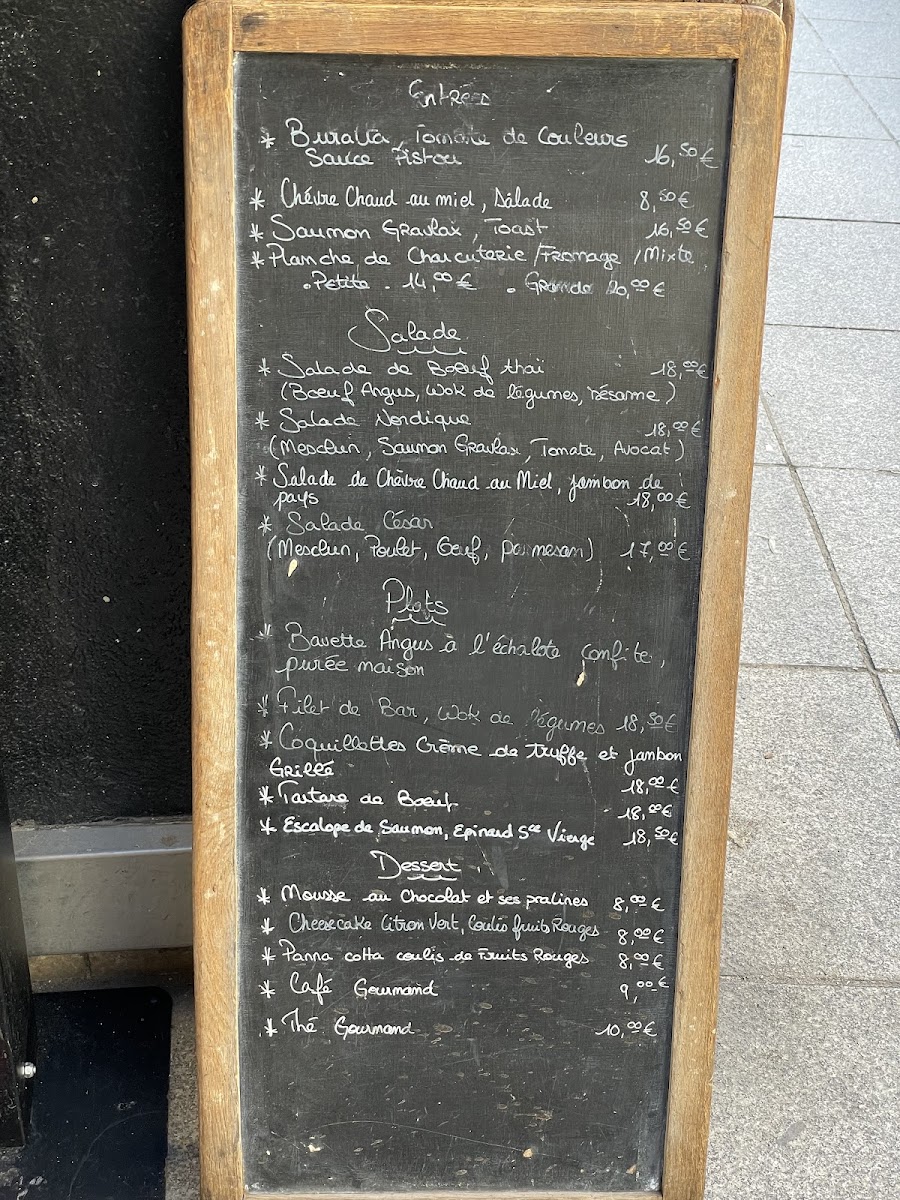 Entrées
* Buratta, Tomate de Couleurs
Sauce Pistou 16,50€
* Chévre Chaud au miel, Salade 8,50€
* Saumon Gravlax, Toast 16,50€
* Planche de Charcuterie/Fromage/Mixte
. Petite . 14,00€ . Grande 20,00€
Salade
* Salade de Boeuf thaï 18,00€
(Boeuf Angus, Wok de légumes, sésame)
* Salade Nordique 18,00€
(Mesclun, Saumon Gravlax, Tomate, Avocat)
* Salade de Chèvre Chaud au Miel, jambon de
pays 18,00€
* Salade César
(Mesclun, Poulet, Oeuf, parmesan) 17,00€
Plats
* Bavette Angus à l'échalote confite,
purée maison
* Filet de Bar, Wok de légumes 18,50€
* Coquillettes Crème de truffe et jambon
Grillé 18,00€
* Tartare de Boeuf 18,00€
* Escalope de Saumon, Epinard Sce Vierge 18,50€
Dessert
* Mousse au Chocolat et ses pralines 8,00€
* Cheesecake Citron Vert, Coulis fruits Rouges 8,00€
* Panna cotta coulis de Fruits Rouges 8,00€
* Café Gourmand 9,00€
* Thé Gourmand 10,00€